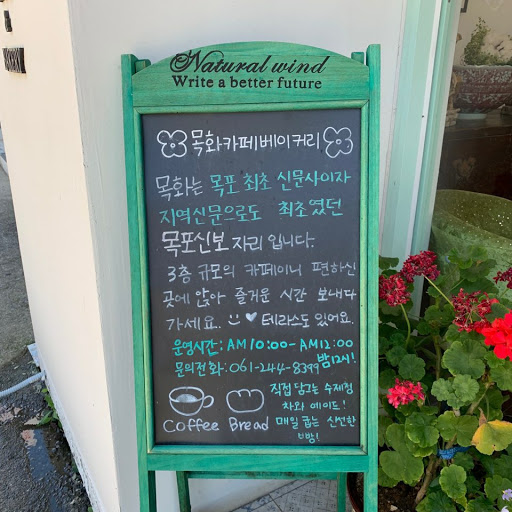 Natural wind
Write a better future
목화카페베이커리
목화는 목포 최초 신문사이자
지역신문으로도 최초였던
목포신보 자리 입니다.
3층 규모의 카페이니 편하신
곳에 앉아 즐거운 시간 보내다
가세요.. 테라스도 있어요.
운영시간: AM10:00-AM12:00
밤12시!
문의전화:061-244-8399
직접 담그는 수제청
차와 에이드!
매일 굽는 신선한
빵!
Coffee Bread